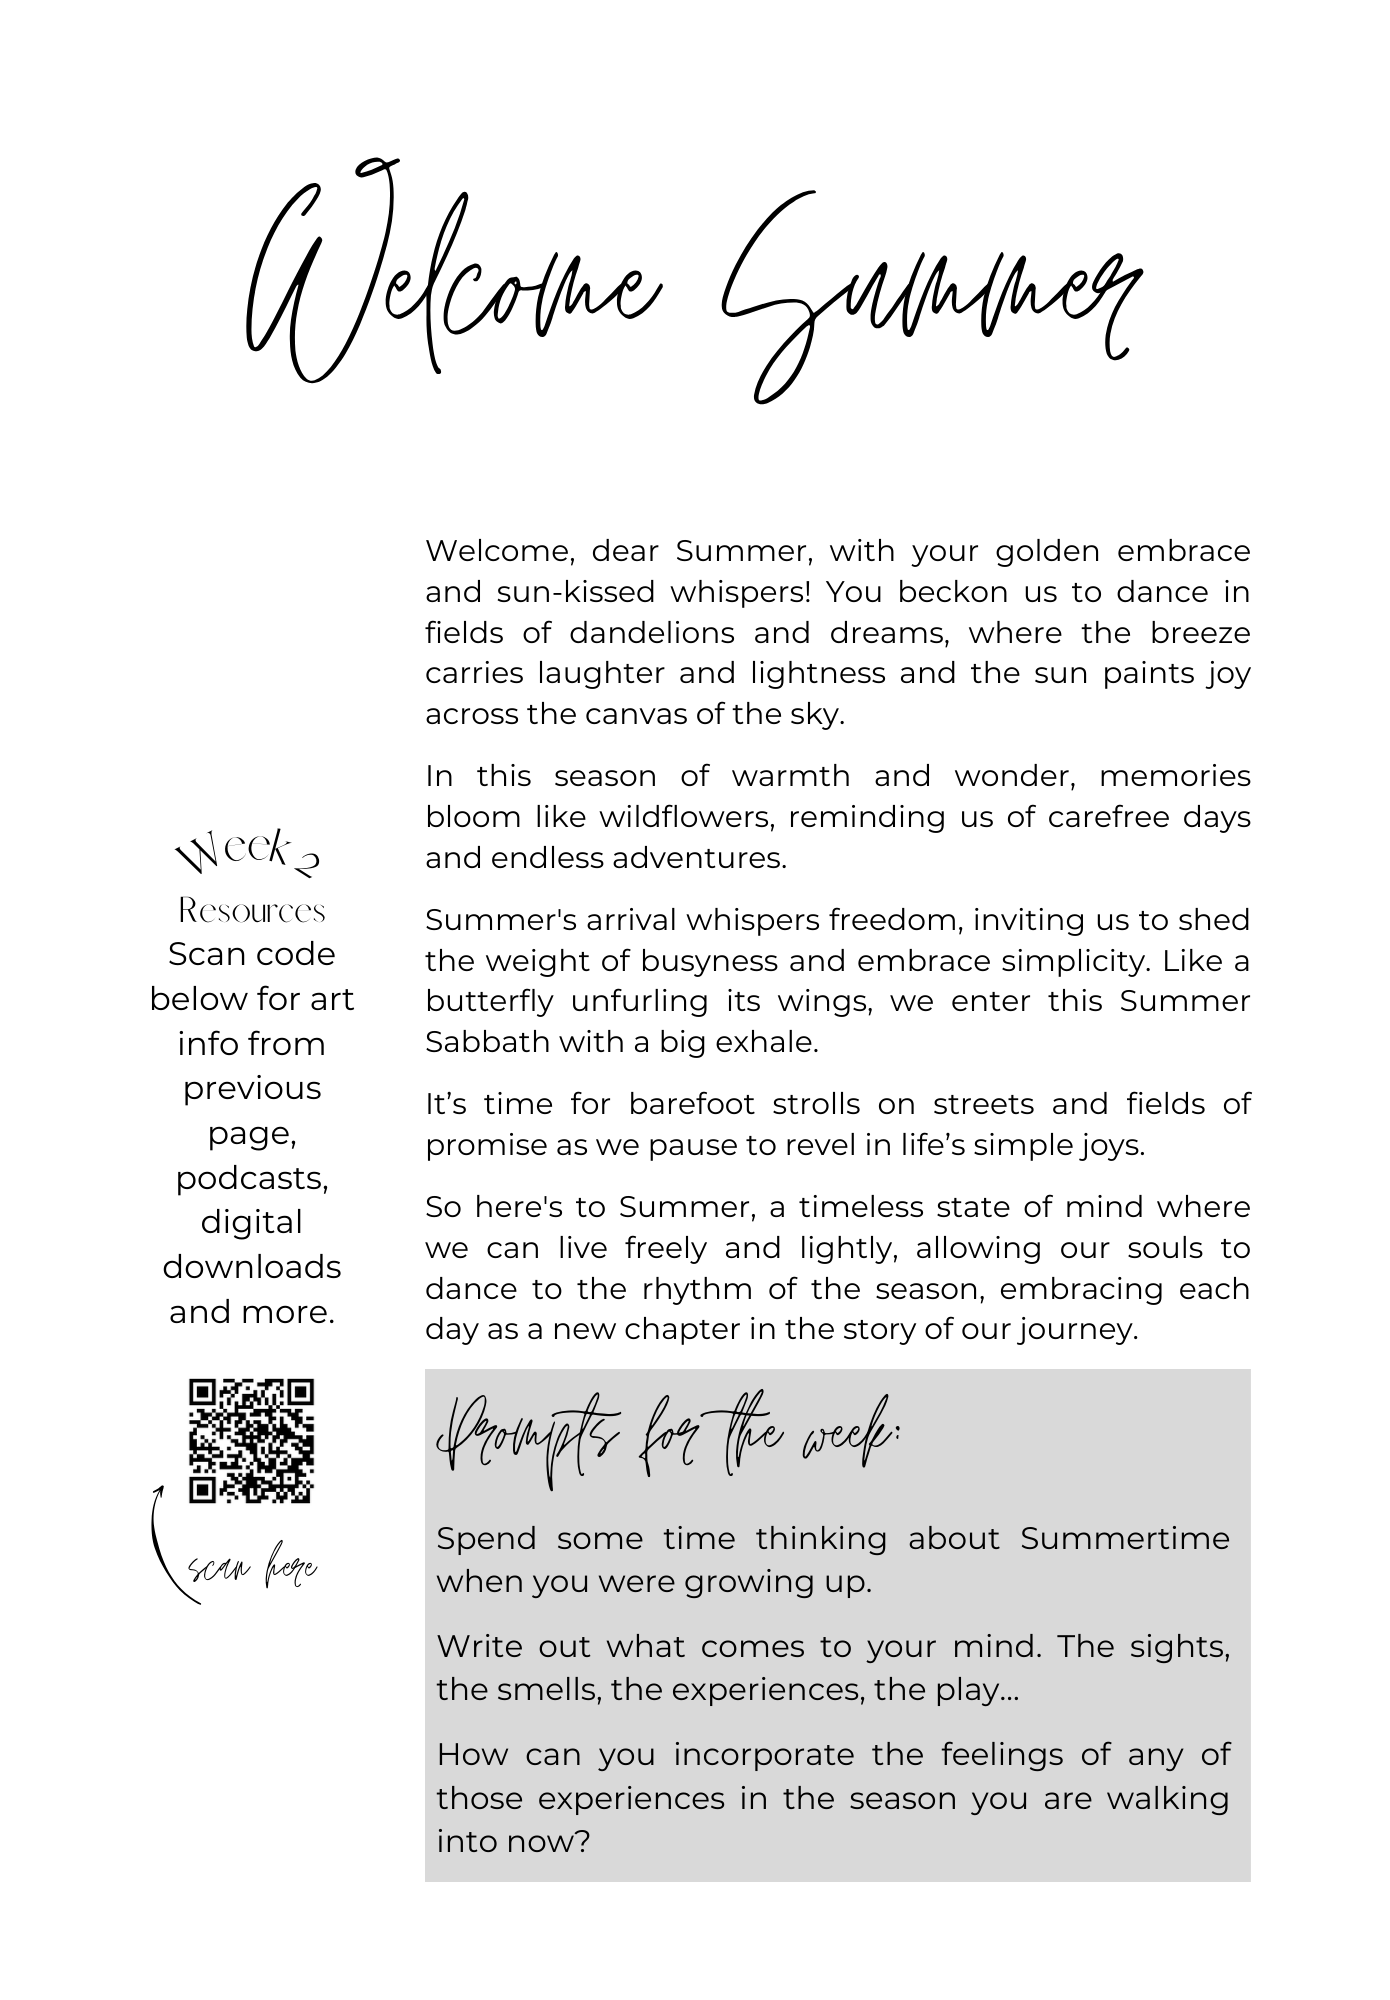 Welcome Summer
Welcome, dear Summer, with your golden embrace
and sun-kissed whispers! You beckon us to dance in
fields of dandelions and dreams, where the breeze
carries laughter and lightness and the sun paints joy
across the canvas of the sky.
In this season of warmth and wonder, memories
bloom like wildflowers, reminding us of carefree days
and endless adventures.
Summer's arrival whispers freedom, inviting us to shed
the weight of busyness and embrace simplicity. Like a
butterfly unfurling its wings, we enter this Summer
Sabbath with a big exhale.
It’s time for barefoot strolls on streets and fields of
promise as we pause to revel in life’s simple joys.
So here's to Summer, a timeless state of mind where
we can live freely and lightly, allowing our souls to
dance to the rhythm of the season, embracing each
day as a new chapter in the story of our journey.
Week 2
Resources
Scan code
below for art
info from
previous
page,
podcasts,
digital
downloads
and more.
scan here
Prompts for the week:
Spend some time thinking about Summertime
when you were growing up.
Write out what comes to your mind. The sights,
the smells, the experiences, the play...
How can you incorporate the feelings of any of
those experiences in the season you are walking
into now?